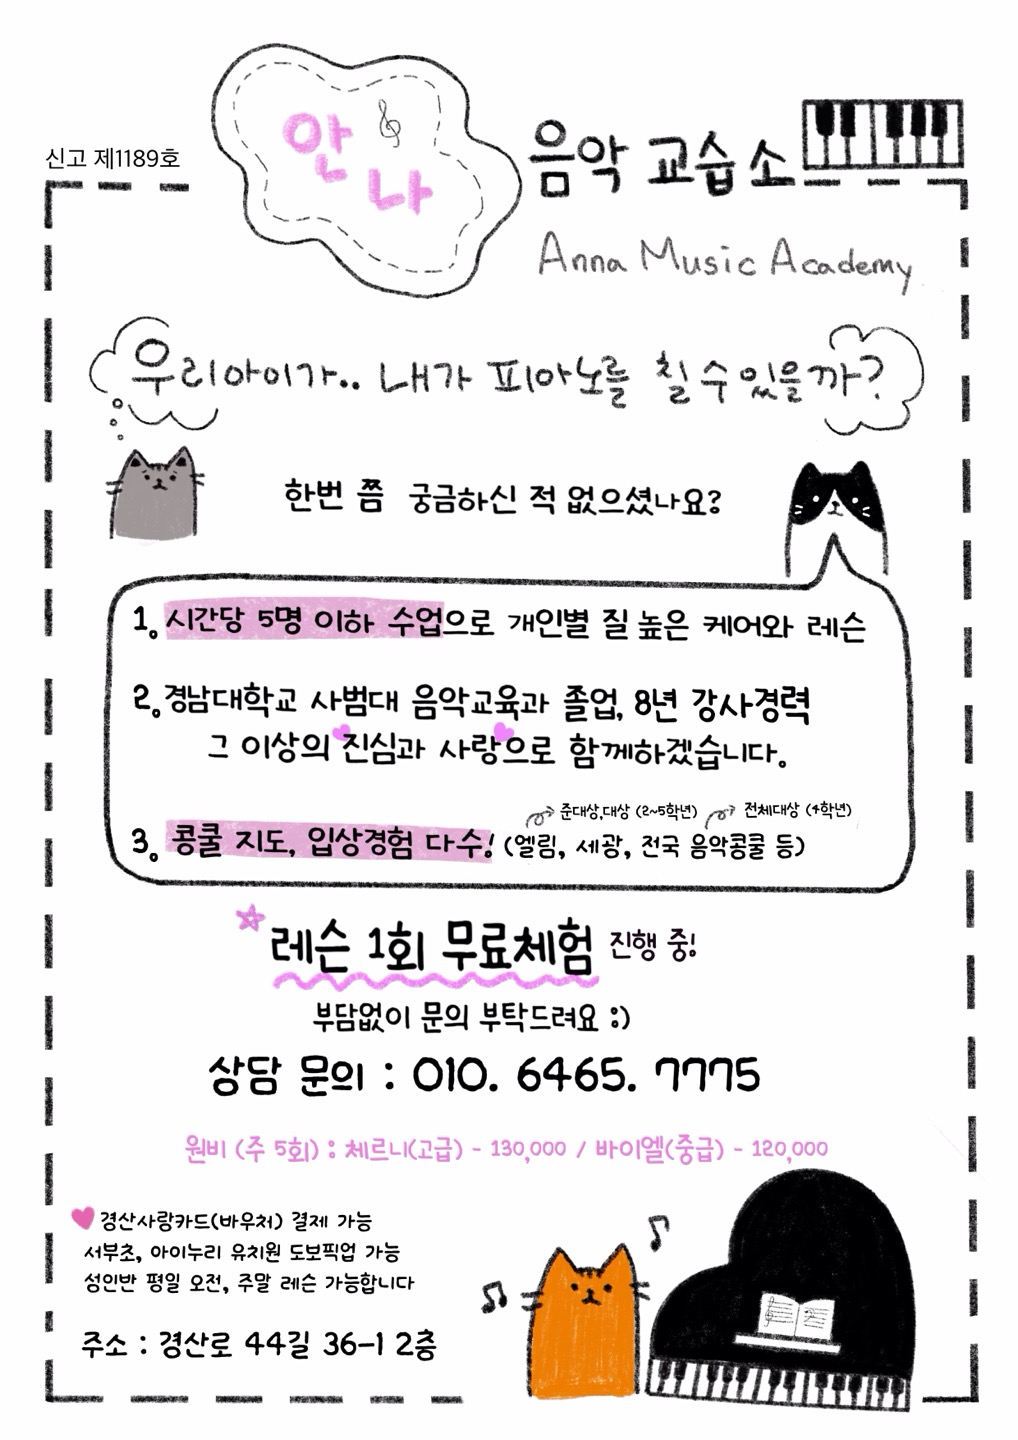 신고 제1189호
안나 음악 교습소
Anna Music Academy
우리아이가.. 내가 피아노를 칠 수 있을까?
한번 쯤 궁금하신 적 없으셨나요?
1. 시간당 5명 이하 수업으로 개인별 질 높은 케어와 레슨
2. 경남대학교 사범대 음악교육과 졸업, 8년 강사경력
그 이상의 진심과 사랑으로 함께하겠습니다.
준대상,대상 (2~5학년) 전체대상 (4학년)
3. 콩쿨 지도, 입상경험 다수! (엘림, 세광, 전국 음악콩쿨 등)
레슨 1회 무료체험 진행 중!
부담없이 문의 부탁드려요 :)
상담 문의 : 010. 6465. 7775
원비 (주 5회) : 체르니(고급) - 130,000 / 바이엘(중급) - 120,000
경산사랑카드(바우처) 결제 가능
서부초, 아이누리 유치원 도보픽업 가능
성인반 평일 오전, 주말 레슨 가능합니다
주소 : 경산로 44길 36-1 2층